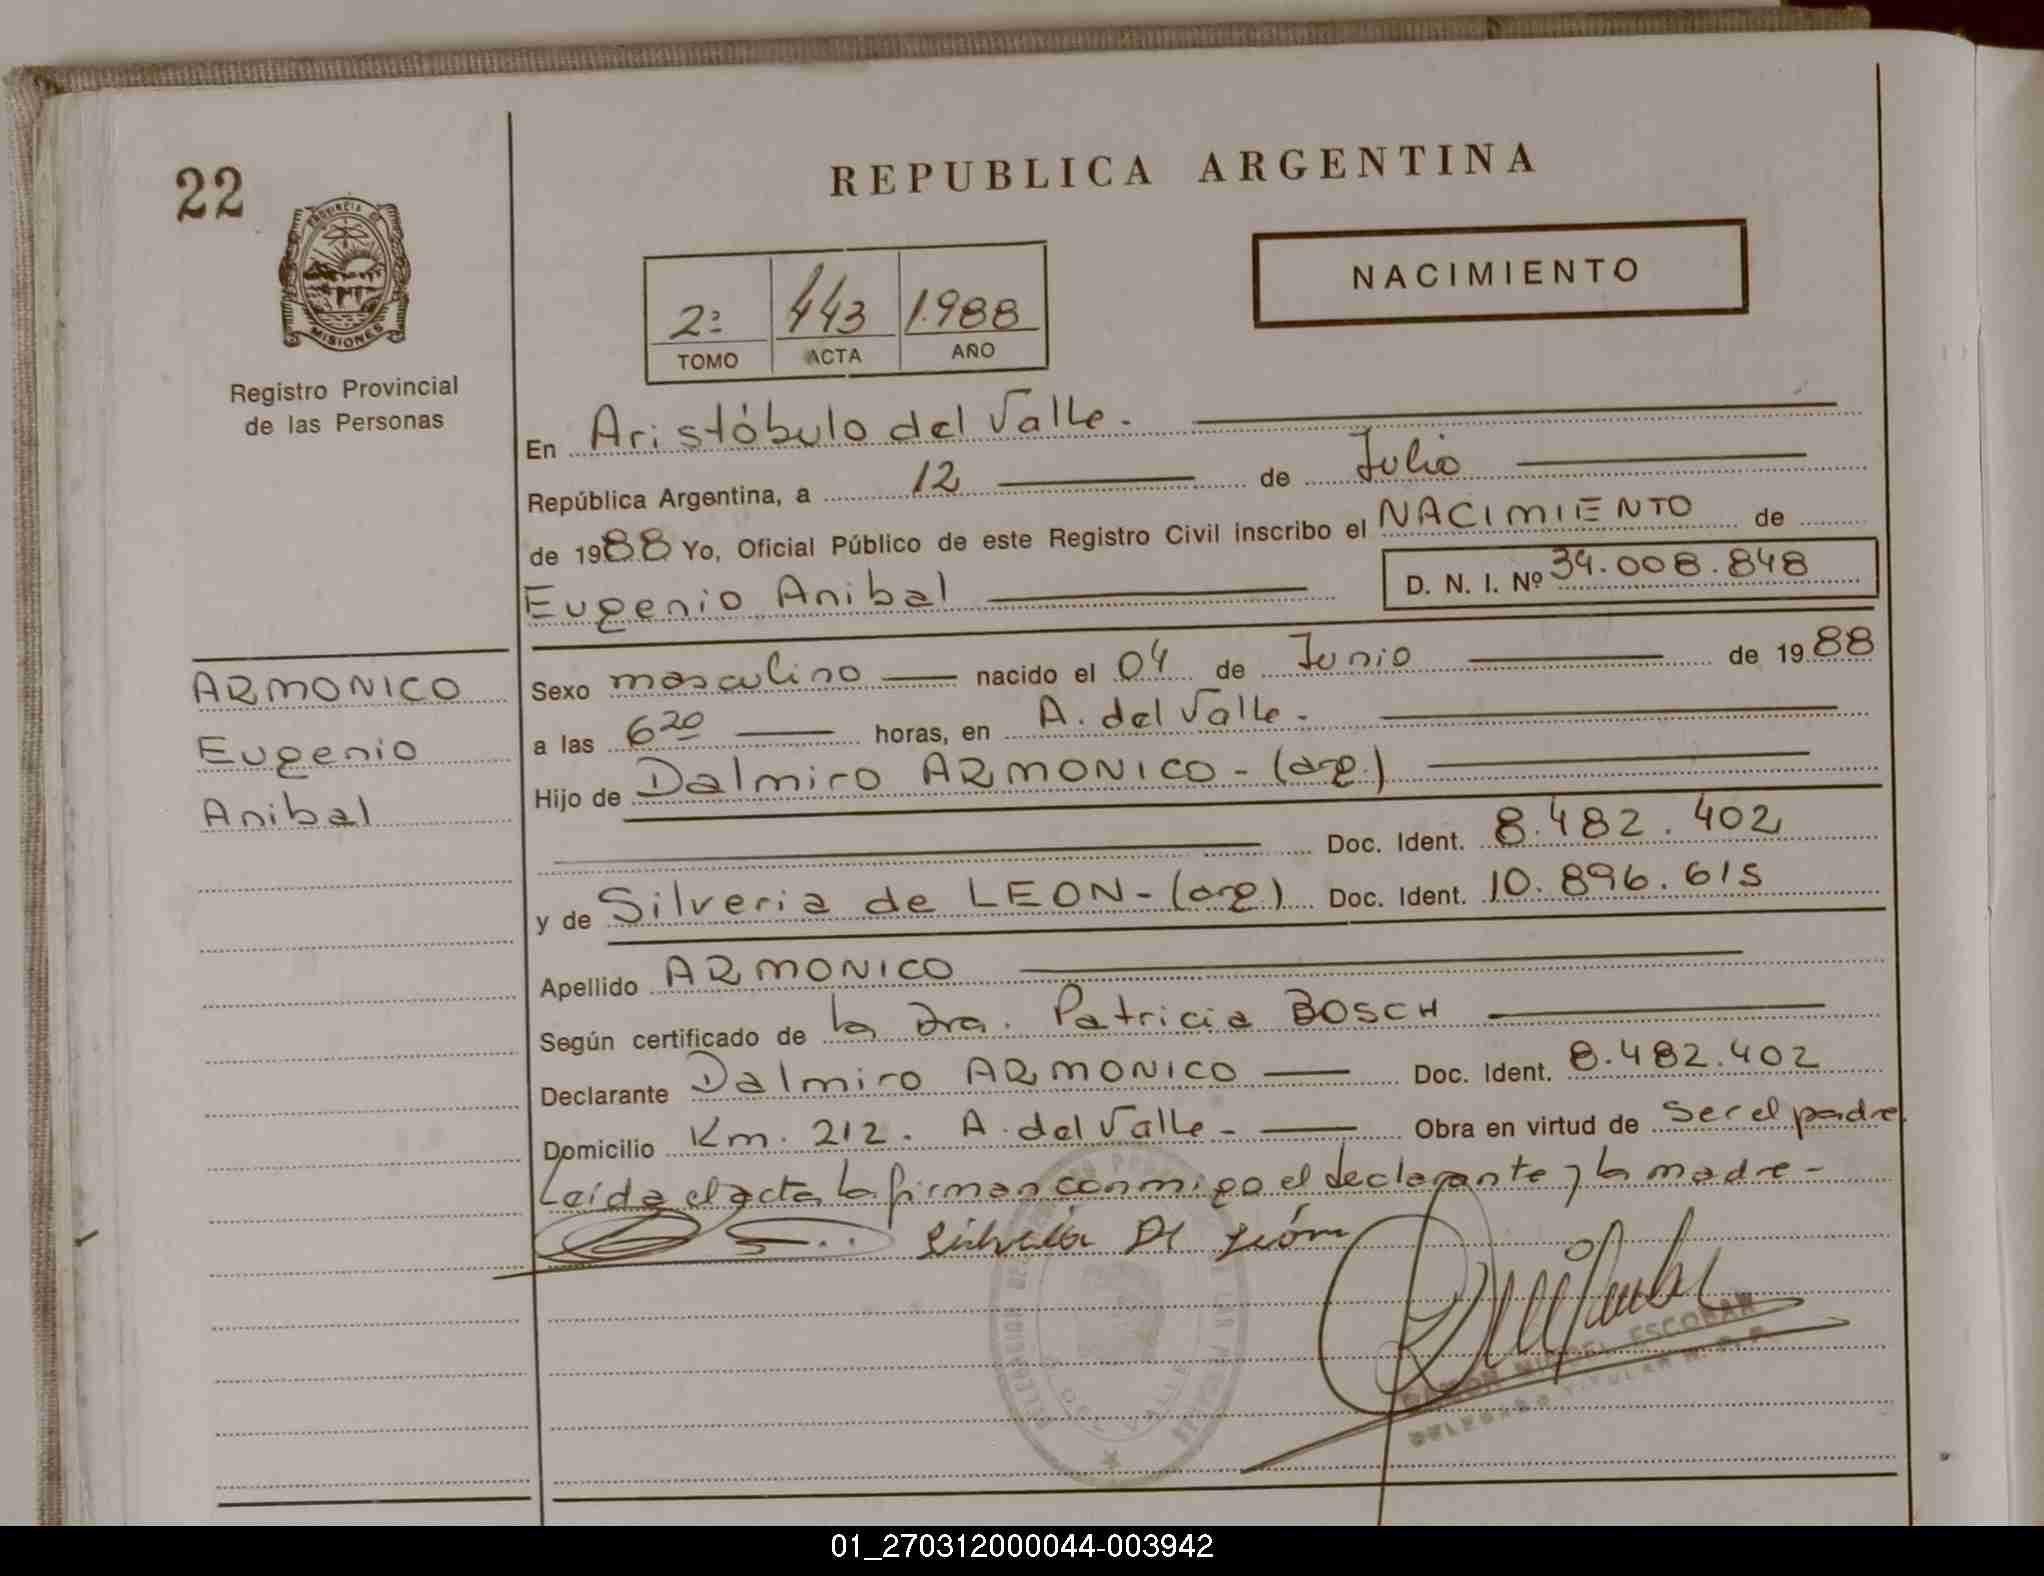 22
PROVINCIA DE
MISIONES
Registro Provincial
de las Personas
REPUBLICA ARGENTINA
NACIMIENTO
2º 443 1.988
TOMO ACTA AÑO
En Aristóbulo del Valle.
República Argentina, a 12 de Julio
de 1988 Yo, Oficial Público de este Registro Civil inscribo el NACIMIENTO de
Eugenio Anibal D. N. I. Nº 34.008.848
ARMONICO
Eugenio
Anibal
Sexo masculino nacido el 04 de Junio de 1988
a las 6 20 horas, en A. del Valle.
Hijo de Dalmiro ARMONICO - (arg.)
Doc. Ident. 8.482.402
y de Silveria de LEON - (arg) Doc. Ident. 10.896.615
Apellido ARMONICO
Según certificado de la Dra. Patricia BOSCH
Declarante Dalmiro ARMONICO Doc. Ident. 8.482.402
Domicilio Km. 212. A. del Valle - Obra en virtud de Ser el padre
Leída el acta la firman conmigo el declarante y la madre -
Silveria De León
RAMON MIGUEL ESCOBAR
DELEGADO TITULAR
01_270312000044-003942